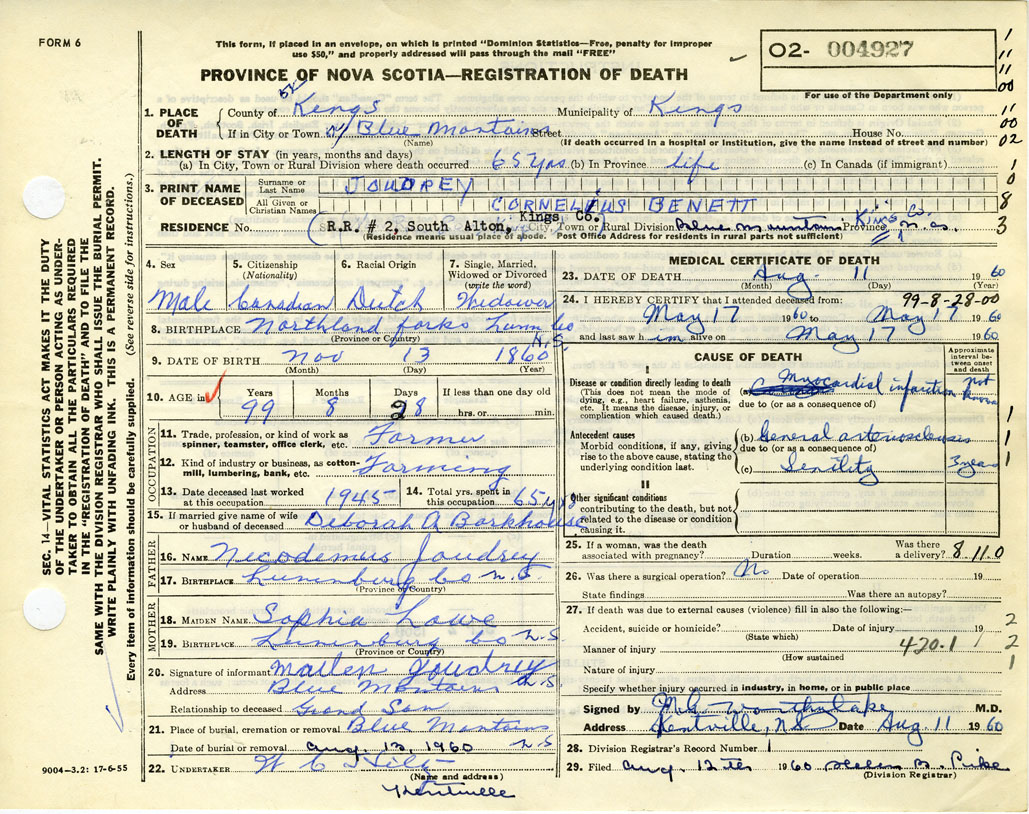 FORM 6
This form, if placed in an envelope, on which is printed "Dominion Statistics—Free, penalty for improper
use $50," and properly addressed will pass through the mail "FREE"
O2- 004927
For use of the Department only
PROVINCE OF NOVA SCOTIA—REGISTRATION OF DEATH
1. PLACE OF DEATH
County of Kings Municipality of Kings
If in City or Town Blue Montains Street House No.
(Name) (If death occurred in a hospital or institution, give the name instead of street and number)
2. LENGTH OF STAY (in years, months and days)
(a) In City, Town or Rural Division where death occurred 65 yrs (b) In Province life (c) In Canada (if immigrant)
3. PRINT NAME OF DECEASED
Surname or Last Name JOUDREY
All Given or Christian Names CORNELIUS BENETT
RESIDENCE No. R.R. # 2, South Alton, Kings Co. City, Town or Rural Division Blue Mountains Province N.S. Kings Co.
(Residence means usual place of abode. Post Office Address for residents in rural parts not sufficient)
4. Sex Male
5. Citizenship (Nationality) Canadian
6. Racial Origin Dutch
7. Single, Married, Widowed or Divorced (write the word) Widower
8. BIRTHPLACE Northland forks Lunn Co N.S.
(Province or Country)
9. DATE OF BIRTH Nov 13 1860
(Month) (Day) (Year)
10. AGE in Years 99 Months 8 Days 28 If less than one day old hrs. or min.
OCCUPATION
11. Trade, profession, or kind of work as spinner, teamster, office clerk, etc. Farmer
12. Kind of industry or business, as cotton-mill, lumbering, bank, etc. Farming
13. Date deceased last worked at this occupation. 1945
14. Total yrs. spent in this occupation. 65 yrs
15. If married give name of wife or husband of deceased Deborah A Barkhouse
FATHER
16. NAME Necodemus Joudrey
17. BIRTHPLACE Lunenburg Co N.S.
(Province or Country)
MOTHER
18. MAIDEN NAME Sophia Lowe
19. BIRTHPLACE Lunenburg Co N.S.
(Province or Country)
20. Signature of informant Mailen Joudrey
Address Blue Montains N.S.
Relationship to deceased Grand Son
21. Place of burial, cremation or removal Blue Montains
Date of burial or removal Aug. 13, 1960 N.S
22. UNDERTAKER W C Hiltz
(Name and address)
Kentville
9004—3.2: 17-6-55
MEDICAL CERTIFICATE OF DEATH
23. DATE OF DEATH Aug. 11 1960
(Month) (Day)
24. I HEREBY CERTIFY that I attended deceased from: 99-8-28-00
May 17 1960 to May 17 1960
and last saw him alive on May 17 1960
CAUSE OF DEATH
Approximate interval between onset and death
I
Disease or condition directly leading to death
(This does not mean the mode of dying, e.g., heart failure, asthenia, etc. It means the disease, injury, or complication which caused death.)
(a) Myocardial infarction not known
due to (or as a consequence of)
Antecedent causes
Morbid conditions, if any, giving rise to the above cause, stating the underlying condition last.
(b) General arteriosclerosis
due to (or as a consequence of)
(c) Senility 3 years
II
Other significant conditions
contributing to the death, but not related to the disease or condition causing it.
25. If a woman, was the death associated with pregnancy? Duration weeks. Was there a delivery? 8 11.0
26. Was there a surgical operation? No Date of operation 19
State findings Was there an autopsy?
27. If death was due to external causes (violence) fill in also the following:—
Accident, suicide or homicide? Date of injury 19
(State which)
Manner of injury 420.1
(How sustained)
Nature of injury
Specify whether injury occurred in industry, in home, or in public place
Signed by M.D.
Address Kentville, NS Date Aug 11 1960
28. Division Registrar's Record Number 1
29. Filed Aug. 12th 1960 Pike
(Division Registrar)
SEC. 14—VITAL STATISTICS ACT MAKES IT THE DUTY
OF THE UNDERTAKER OR PERSON ACTING AS UNDER-
TAKER TO OBTAIN ALL THE PARTICULARS REQUIRED
IN THE "REGISTRATION OF DEATH" AND FILE THE
SAME WITH THE DIVISION REGISTRAR WHO SHALL ISSUE THE BURIAL PERMIT.
WRITE PLAINLY WITH UNFADING INK. THIS IS A PERMANENT RECORD.
Every item of information should be carefully supplied. (See reverse side for instructions.)